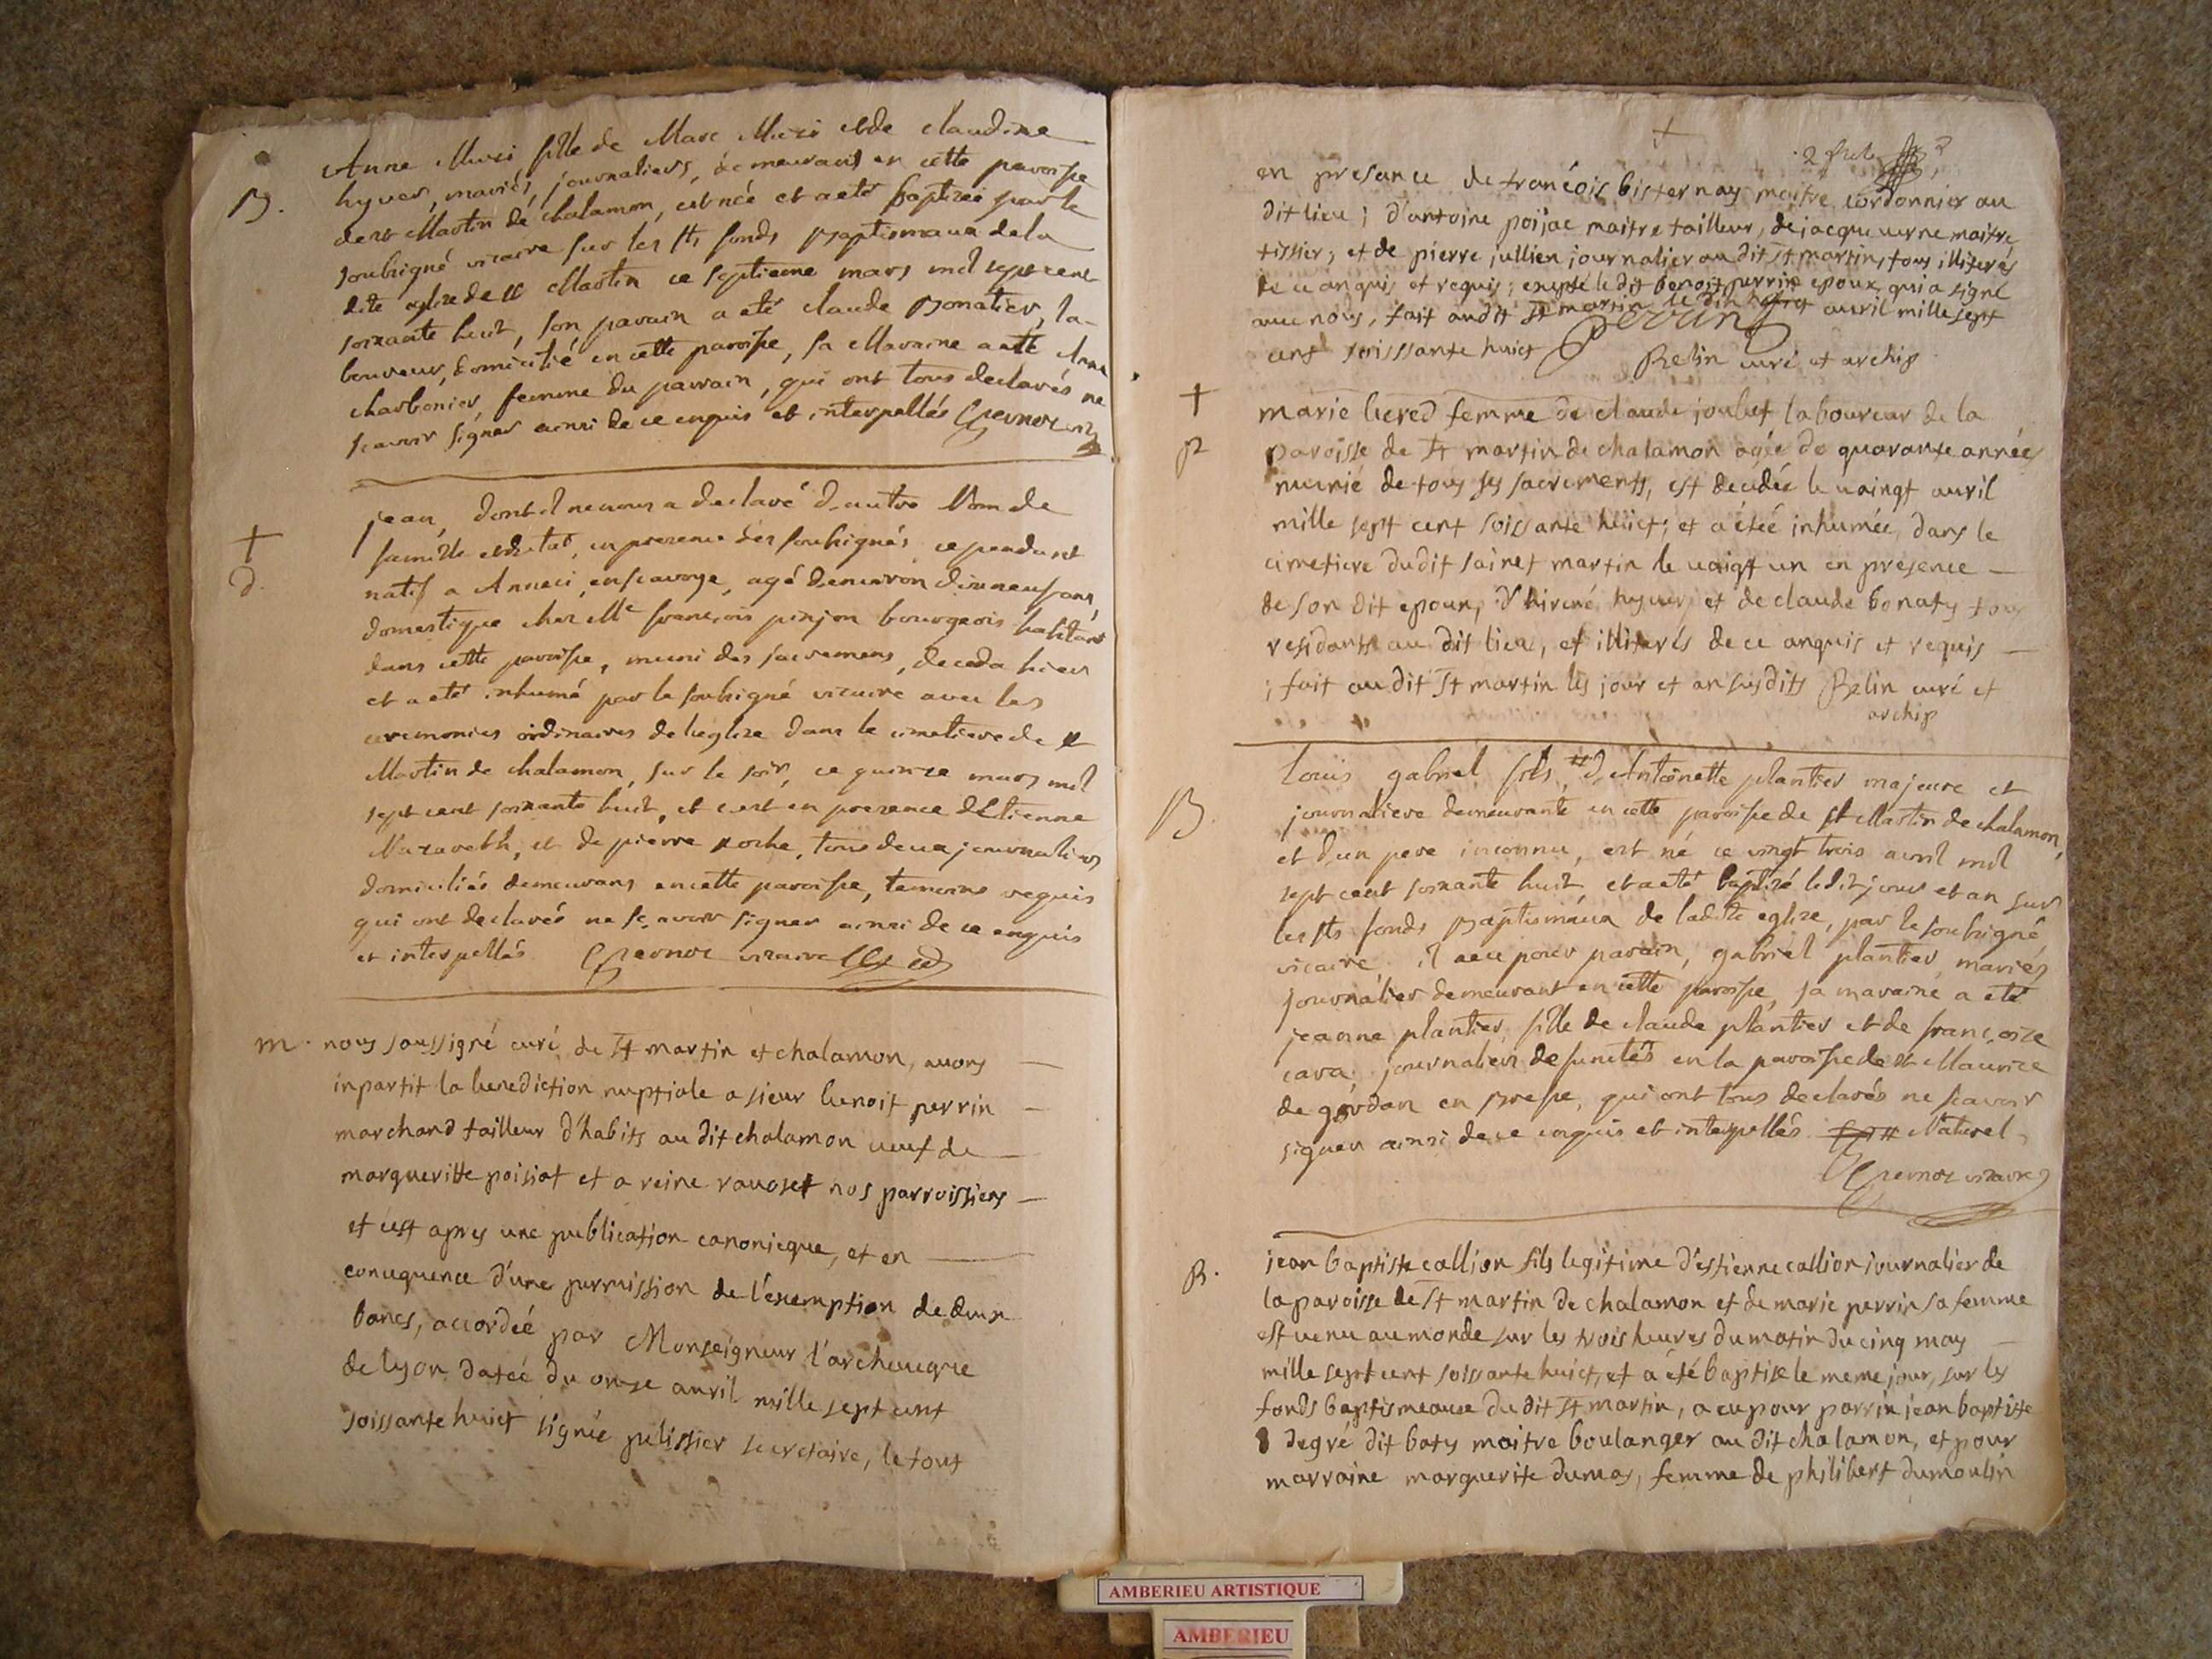 B.
Anne Muzi fille de Marc Muzi et de claudine
hyver, mariés, journaliers, demeurans en cette paroisse
de st Martin de chalamon, est née et a eté baptizée par le
soubsigné vicaire sur les sts fonds baptismaux de la
dite eglize de st Martin ce septieme mars mil sept cent
soixante huit, son parain a eté claude Bonatier, la-
boureur, domicilié en cette paroisse, sa Maraine a eté Anne
charbonier, femme du parrain, qui ont tous declarés ne
scavoir signer ainsi de ce enquis et interpellés
†
d.
jean, dont il ne nous a declaré d'autre Nom de
famille et d'etat, en presence des soubsignés cependant
natif a Anneci, en scavoye, agé d'environ dixneuf ans,
domestique chez Mr françois pinjon bourgeois habitant
dans cette paroisse, muni des sacremens, deceda hier
et a eté inhumé par le soubsigné vicaire avec les
ceremonies ordinaires de l'eglize dans le cimetiere de st
Martin de chalamon, sur le soir, ce quinze mars mil
sept cent soixante huit, et c'est en presence d'Etienne
Nazareth, et de pierre roche, tous deux journaliers
domiciliés demeurans en cette paroisse, temoins requis
qui ont declarés ne scavoir signer ainsi de ce enquis
et interpellés vicaire
m. nous soussigné curé de st martin et chalamon, avons
inpartit la benediction nuptiale a sieur benoit perrin
marchand tailleur d'habits au dit chalamon veuf de
margueritte poisiat et a reine ravoset nos parroissiens
et c'est apres une publication canonicque, et en
concequence d'une permission de l'exemption de deux
bancs, accordéé par Monseigneur l'archevecque
de lyon datéé du onze avril mille sept cent
soissante huict signée pelissier secretaire, le tout
†
en presance de françois bisternay maitre cordonnier au
dit lieu; d'antoine poijac maitre tailleur, de jacque verne maitre
tissier; et de pierre jullien journalier au dit st martin, tous illiterés
de ce anquis et requis; exepté le dit benoit perrin epoux qui a signé
avec nous, fait audit st martin le dix avril mille sept
cent soissante huict Perrin
Belin curé et archip
†
marie bered femme de claude joubet laboureur de la
paroisse de st martin de chalamon agée de quarante années
munie de tous ses sacrements, est decedée le vaingt avril
mille sept cent soissante huict; et a étéé inhumée, dans le
cimetiere dudit sainct martin le vaigt un en presence
de son dit epoux, d'hirené hyver, et de claude bonaty tous
residants au dit lieu, et illiterés de ce anquis et requis
; fait au dit st martin les jour et an susdits Belin curé et
archip
B
louis gabriel fils # d'Antoinette plantier majeure et
journaliere demeurante en cette paroisse de st Martin de chalamon,
et d'un pere inconnu, est né ce vingt trois avril mil
sept cent soixante huit et a eté baptizé ledit jour et an sur
les sts fonds baptismaux de ladite eglize, par le soubsigné
vicaire. il a eu pour parain, gabriel plantier mariés
journalier demeurant en cette paroisse, sa maraine a eté
jeanne plantier, fille de claude plantier et de françoize
cara, journaliers defunctés en la paroisse de st Maurice
de gordan en bresse, qui ont tous declarés ne scavoir
signer ainsi de ce enquis et interpellés # Naturel
vicaire
B.
jean baptiste callion fils legitime d'estienne callion journalier de
la paroisse de st martin de chalamon et de marie perrin sa femme
est venu au monde sur les trois heures du matin du cinq may
mille sept cent soissante huict, et a été baptise le meme jour, sur les
fonds baptismeaux du dit st martin, a eu pour parrin jean baptiste
degré dit baty maitre boulanger au dit chalamon, et pour
marraine marguerite dumas, femme de philibert dumoulin
AMBERIEU ARTISTIQUE
AMBERIEU